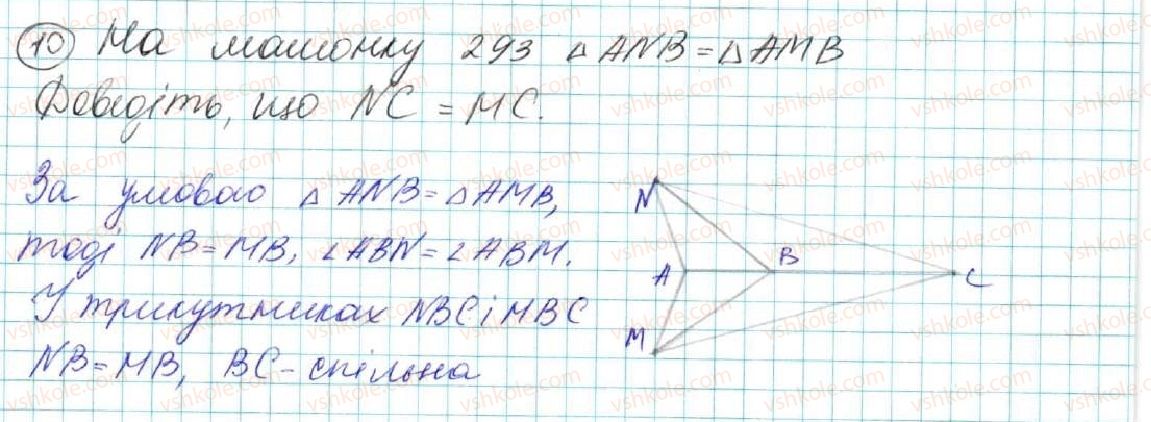 10 На малюнку 293 △ANB = △AMB
Доведіть, що NC = MC.
За умовою △ANB = △AMB,
тоді NB = MB, ∠ABN = ∠ABM.
У трикутниках NBC і MBC
NB = MB, BC - спільна
N
A
B
C
M
vshkole.com